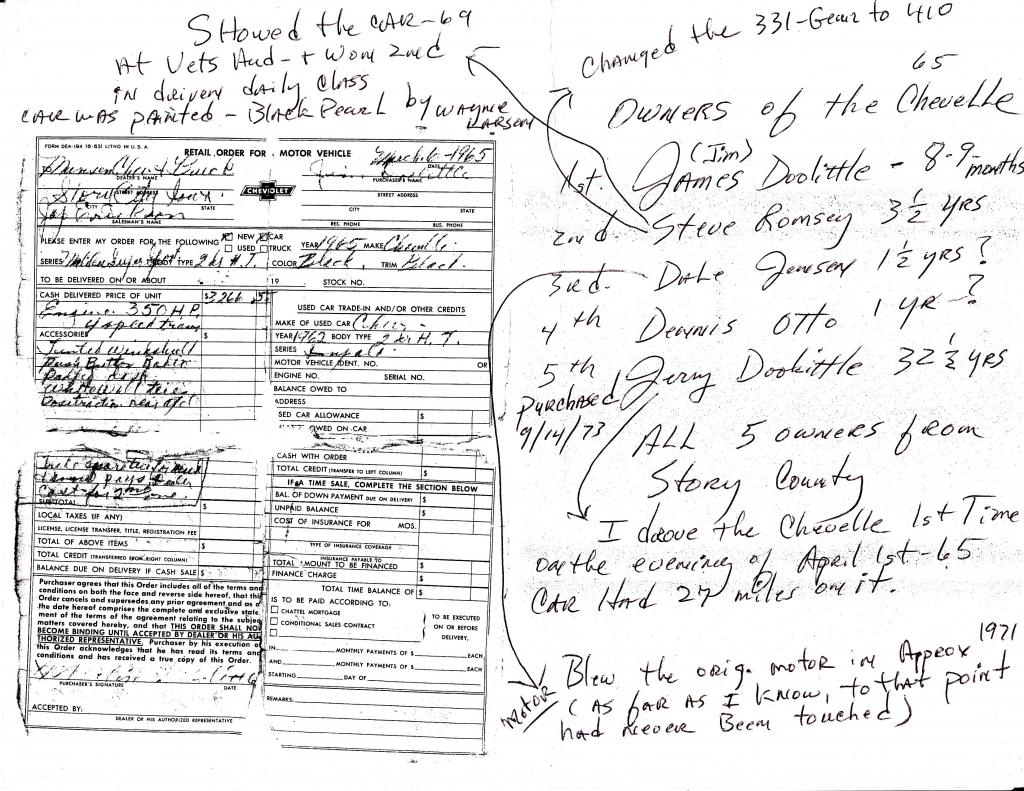 Showed the CAR-69
At Vets Aud - + Won 2nd
in driven daily CLASS
CAR WAS painted - Black Pearl by WAYNE
LARSEN
FORM DEA-194 16-631 LITHO IN U.S.A.
RETAIL ORDER FOR A MOTOR VEHICLE
March 6 - 1965
DATE
DEALER'S NAME
PURCHASER'S NAME
STREET ADDRESS
STREET ADDRESS
CITY STATE
CITY STATE
SALESMAN'S NAME
RES. PHONE BUS. PHONE
CHEVROLET
PLEASE ENTER MY ORDER FOR THE FOLLOWING NEW CAR YEAR 1965 MAKE Chevelle
USED TRUCK
SERIES BODY TYPE 2 dr H.T. COLOR Black TRIM Black
TO BE DELIVERED ON OR ABOUT 19 STOCK NO.
CASH DELIVERED PRICE OF UNIT $3266.
Engine 350 H.P.
4 speed trans
ACCESSORIES $
Tinted Windshield
Push Button Radio
Padded dash
Whitewall tires
Positraction rear axle
USED CAR TRADE-IN AND/OR OTHER CREDITS
MAKE OF USED CAR Chev -
YEAR 1962 BODY TYPE 2 dr H.T.
SERIES Impala
MOTOR VEHICLE IDENT. NO. OR
ENGINE NO. SERIAL NO.
BALANCE OWED TO
ADDRESS
SED CAR ALLOWANCE $
OWED ON CAR $
SUBTOTAL $
LOCAL TAXES (IF ANY)
LICENSE, LICENSE TRANSFER, TITLE, REGISTRATION FEE
TOTAL OF ABOVE ITEMS $
TOTAL CREDIT (TRANSFERRED FROM RIGHT COLUMN)
BALANCE DUE ON DELIVERY IF CASH SALE $
Purchaser agrees that this Order includes all of the terms and
conditions on both the face and reverse side hereof, that this
Order cancels and supersedes any prior agreement and as of
the date hereof comprises the complete and exclusive state-
ment of the terms of the agreement relating to the subject
matters covered hereby, and that THIS ORDER SHALL NOT
BECOME BINDING UNTIL ACCEPTED BY DEALER OR HIS AU-
THORIZED REPRESENTATIVE. Purchaser by his execution of
this Order acknowledges that he has read its terms and
conditions and has received a true copy of this Order.
PURCHASER'S SIGNATURE DATE
ACCEPTED BY:
DEALER OR HIS AUTHORIZED REPRESENTATIVE
CASH WITH ORDER
TOTAL CREDIT (TRANSFER TO LEFT COLUMN) $
IF A TIME SALE, COMPLETE THE SECTION BELOW
BAL. OF DOWN PAYMENT DUE ON DELIVERY $
UNPAID BALANCE $
COST OF INSURANCE FOR MOS.
TYPE OF INSURANCE COVERAGE
INSURANCE PAYABLE TO
TOTAL AMOUNT TO BE FINANCED $
FINANCE CHARGE $
TOTAL TIME BALANCE OF $
IS TO BE PAID ACCORDING TO:
CHATTEL MORTGAGE
CONDITIONAL SALES CONTRACT
TO BE EXECUTED
ON OR BEFORE
DELIVERY.
IN MONTHLY PAYMENTS OF $ EACH
AND MONTHLY PAYMENTS OF $ EACH
STARTING DAY OF
REMARKS:
Changed the 331-Gear to 410
65
OWNERS of the Chevelle
(Jim)
1st. JAMES Doolittle - 8-9 months
2nd. Steve Romsey 3½ YRS
3rd. DALE Jensen 1½ yrs ?
4th Dennis Otto 1 YR - ?
5th Jerry Doolittle 32½ yrs
PURCHASED
9/14/73
ALL 5 owners from
Story County
I drove the Chevelle 1st Time
on the evening of April 1st-65
CAR HAd 27 miles on it.
1971
MOTOR
Blew the orig. motor in Approx
(AS far AS I know, to that point
had never Been touched)